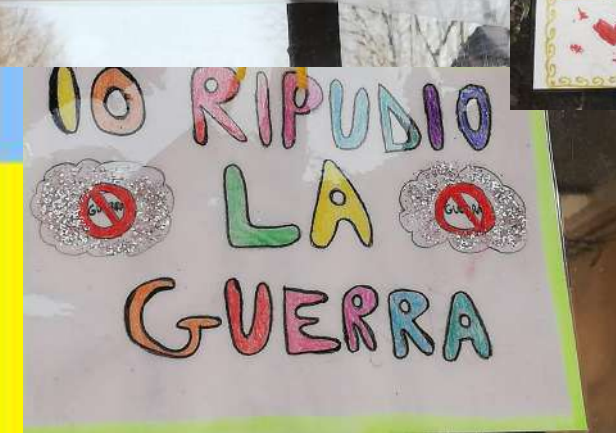 IO RIPUDIO
LA
GUERRA
GUERRA
GUERRA